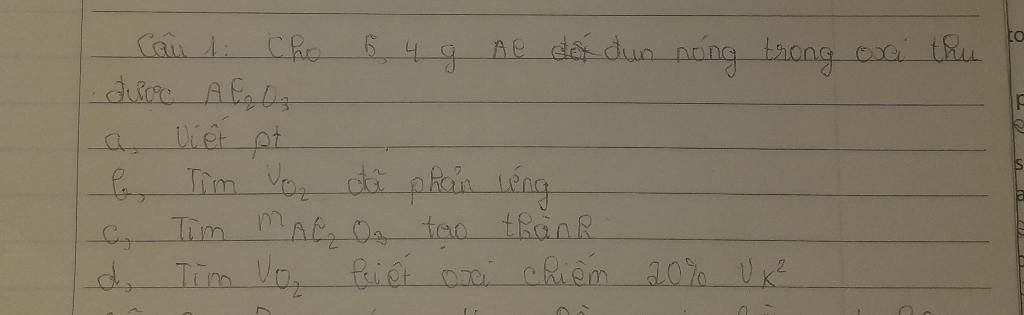 Câu 1: Cho 5,4 g Al đun nóng trong oxi thu
được Al2O3
a, Viết pt
b, Tìm VO2 đã phản ứng
c, Tìm mAl2O3 tạo thành
d, Tìm VO2 biết oxi chiếm 20% VK2